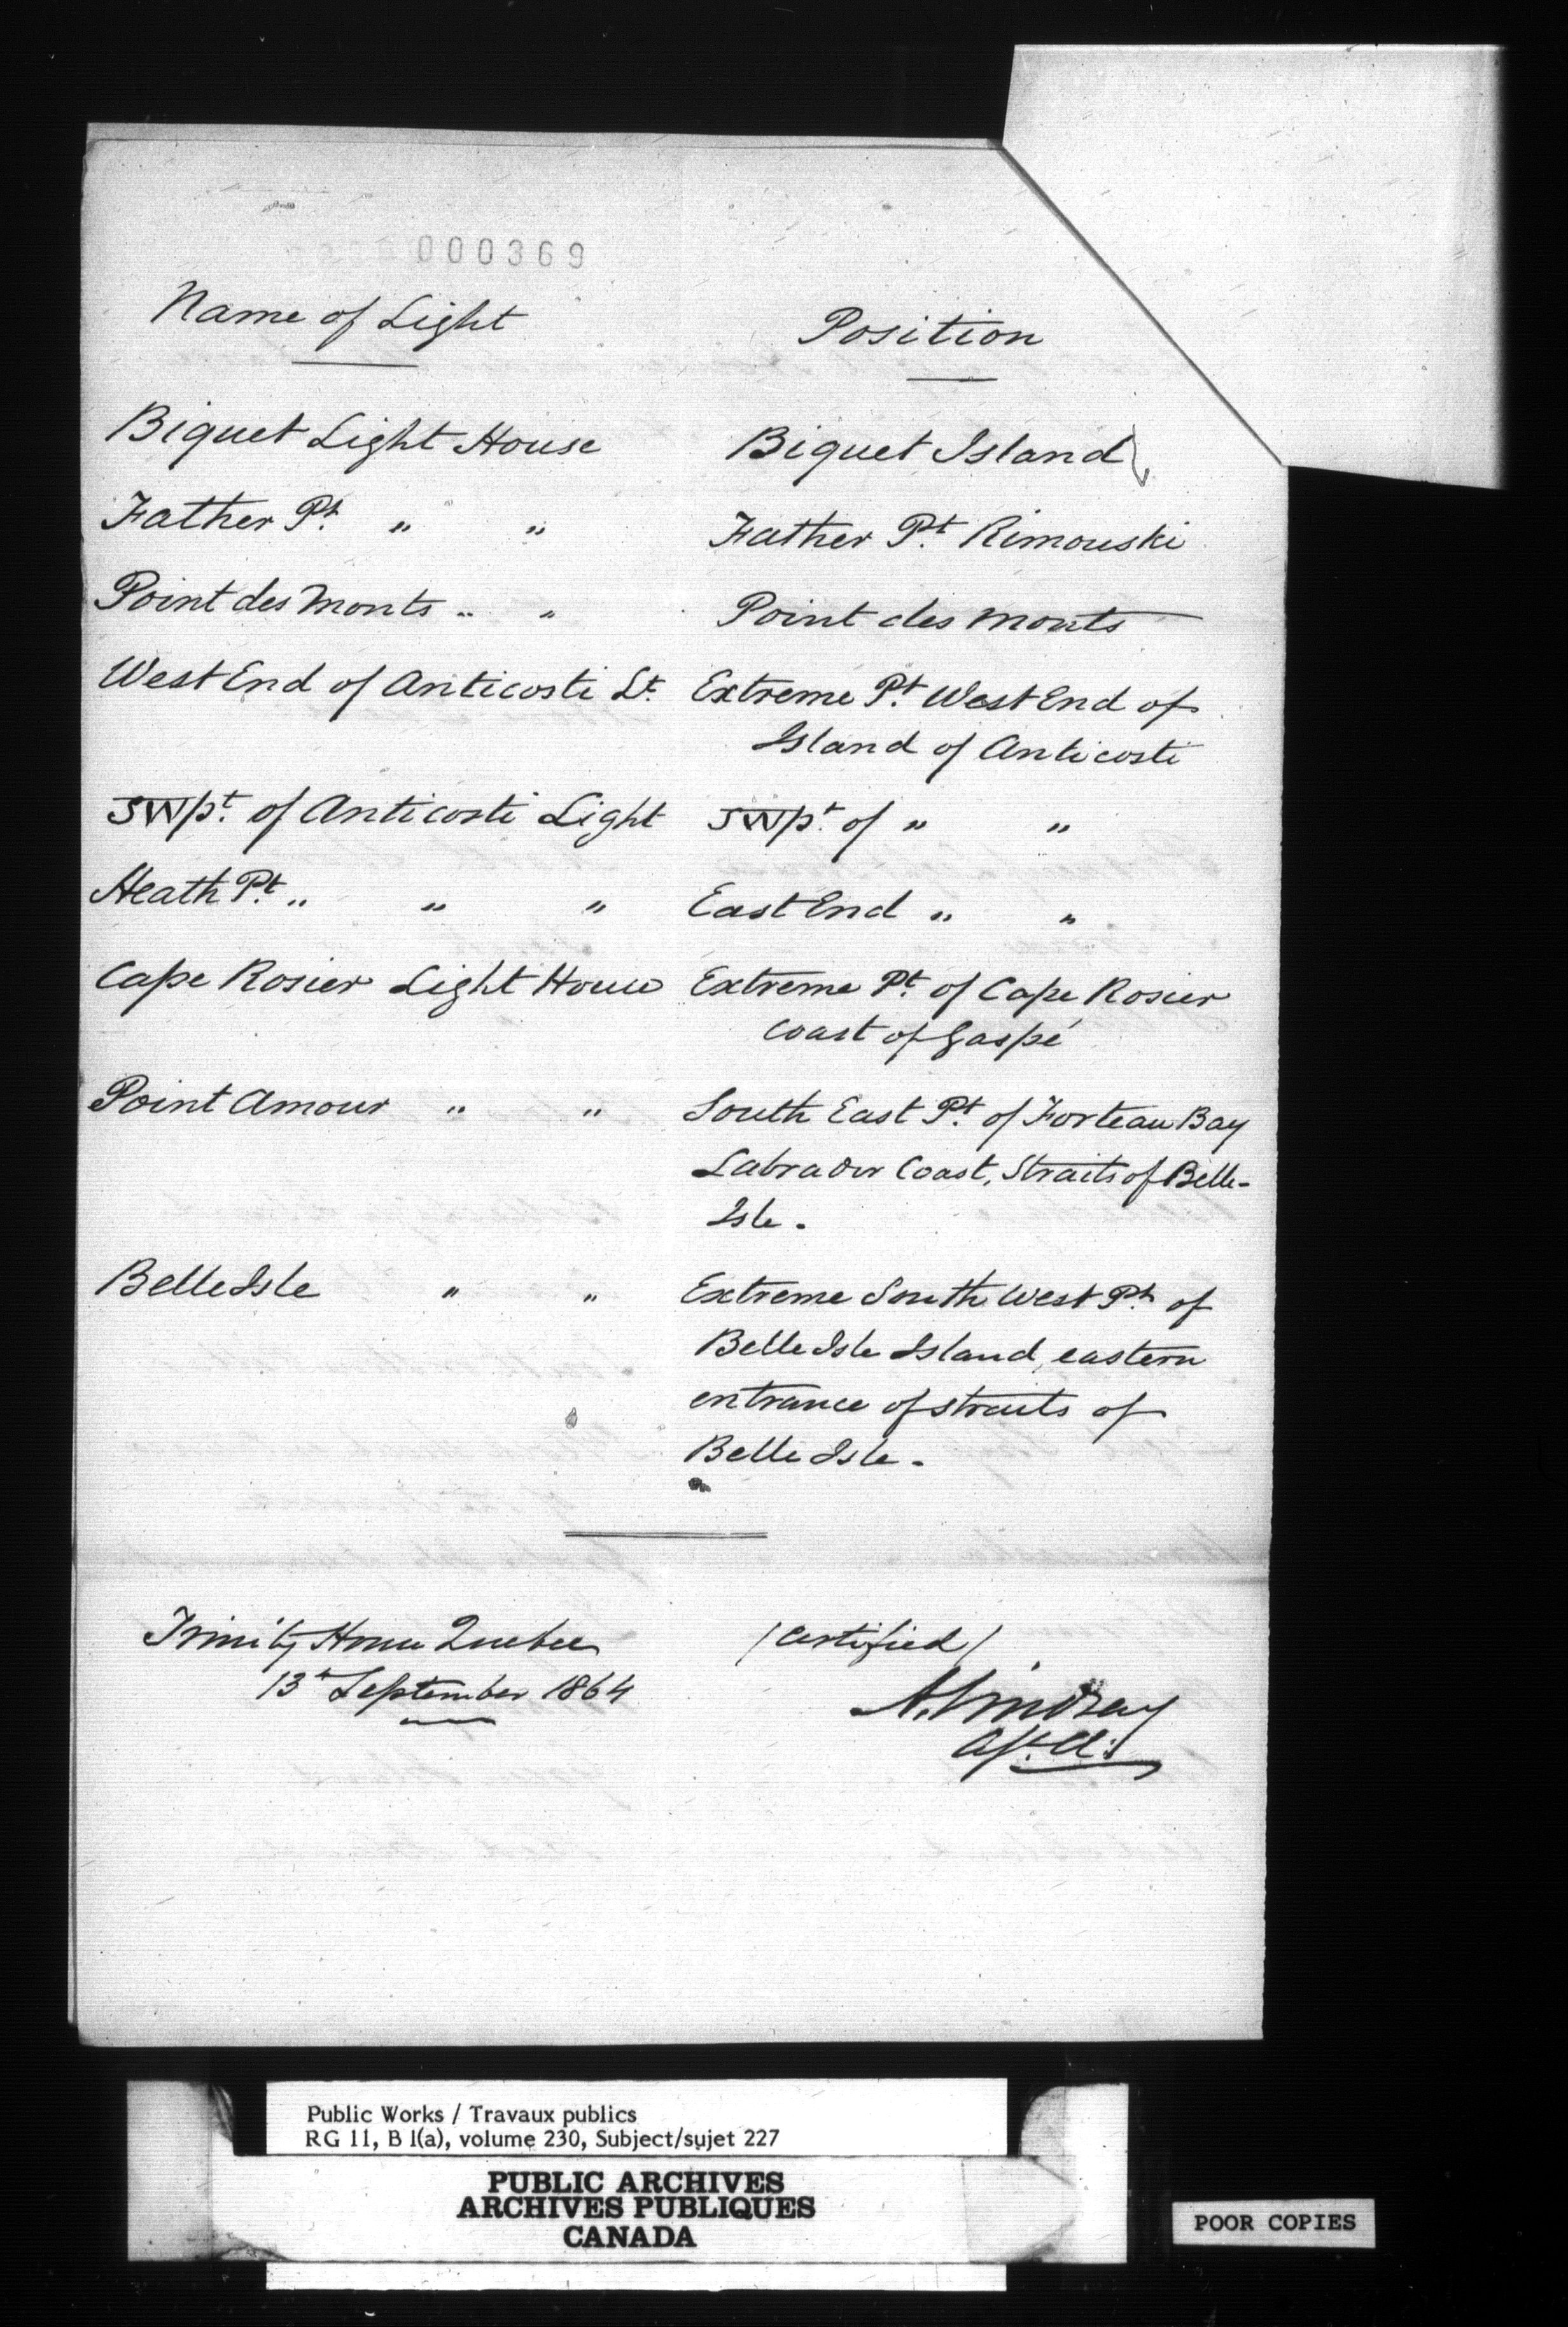 000369
Name of Light Position
Biquet Light House Biquet Island
Father Pt. " " Father Pt. Rimouski
Point des Monts " " Point des Monts
West End of Anticosti Lt. Extreme Pt. West End of
Island of Anticosti
SW pt. of Anticosti Light SW pt. of " "
Heath Pt. " " " East End " "
Cape Rosier Light House Extreme Pt. of Cape Rosier
Coast of Gaspé
Point Amour " " South East Pt. of Forteau Bay
Labrador Coast, Straits of Belle-
Isle.
Belle Isle " " Extreme South West Pt. of
Belle Isle Island, eastern
entrance of straits of
Belle Isle.
Trinity House Quebec (Certified)
13th September 1864
A. Lindsay
Public Works / Travaux publics
RG 11, B 1(a), volume 230, Subject/sujet 227
PUBLIC ARCHIVES
ARCHIVES PUBLIQUES
CANADA
POOR COPIES